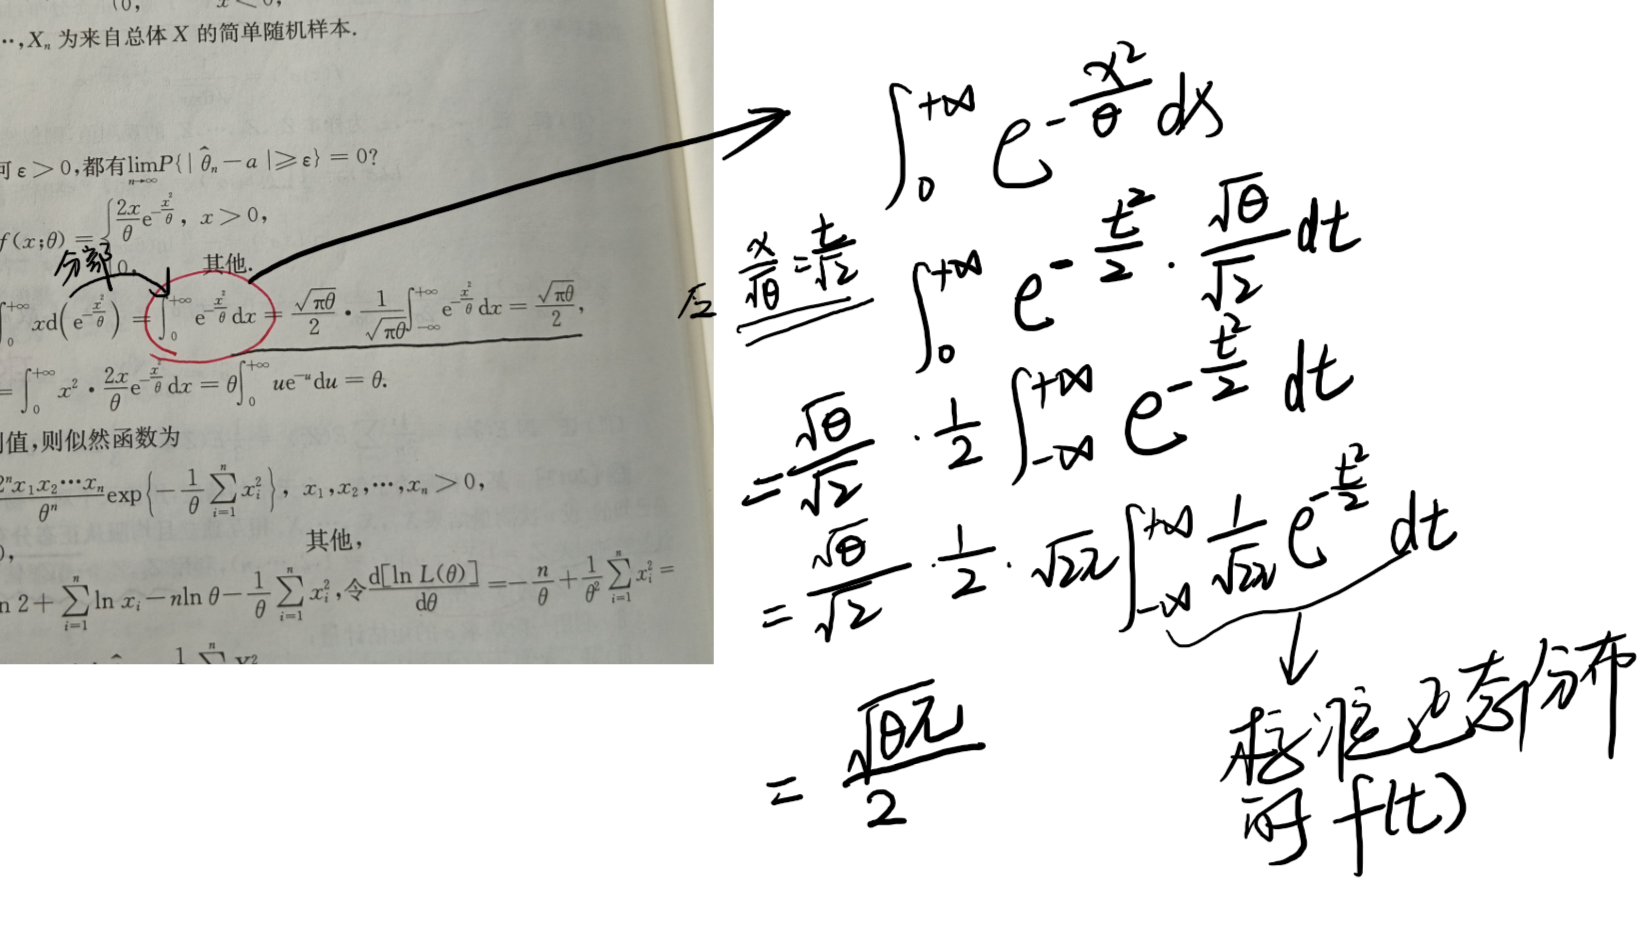 (0, x<0,
…,Xₙ 为来自总体 X 的简单随机样本.
何 ε>0,都有lim_{n→∞}P{|θ̂ₙ-a|≥ε}=0?
f(x;θ)={2x/θ e^{-x²/θ}, x>0,
0, 其他.
分部
∫₀^{+∞} xd(e^{-x²/θ}) = ∫₀^{+∞} e^{-x²/θ}dx = √(πθ)/2 · 1/√(πθ) ∫_{-∞}^{+∞} e^{-x²/θ}dx = √(πθ)/2,
= ∫₀^{+∞} x² · 2x/θ e^{-x²/θ}dx = θ∫₀^{+∞} ue^{-u}du = θ.
值,则似然函数为
2ⁿx₁x₂…xₙ/θⁿ exp{-1/θ ∑_{i=1}^{n} xᵢ²}, x₁,x₂,…,xₙ>0,
其他,
n 2+∑_{i=1}^{n} ln xᵢ-nln θ-1/θ ∑_{i=1}^{n} xᵢ²,令 d[ln L(θ)]/dθ =-n/θ+1/θ² ∑_{i=1}^{n} xᵢ²=
∫₀^{+∞} e^{-x²/θ} dx
x/√θ = t/√2 ∫₀^{+∞} e^{-t²/2} · √θ/√2 dt
= √θ/√2 · 1/2 ∫_{-∞}^{+∞} e^{-t²/2} dt
= √θ/√2 · 1/2 · √2π ∫_{-∞}^{+∞} 1/√2π e^{-t²/2} dt
= √θπ/2
标准正态分布
的 f(t)